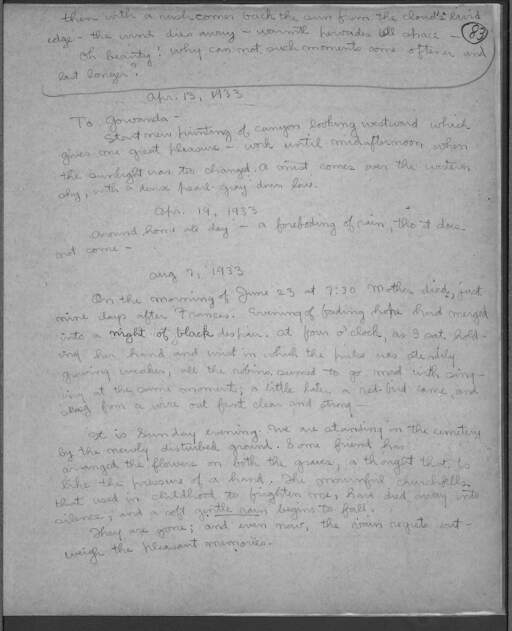 then with a rush comes back the sun from the cloud's livid
edge - the wind dies away - warmth pervades all space -
Oh beauty! why can not such moments come oftener and
last longer?
83
Apr. 13, 1933
To Gowanda -
Start new painting of canyon looking westward which
gives me great pleasure - work until midafternoon when
the sunlight was too changed. A mist comes over the western
sky, with a pearl-gray down low.
Apr. 19, 1933
Around home all day - a foreboding of rain, tho it does
not come -
Aug 7, 1933
On the morning of June 23 at 7:30 Mother died, just
nine days after Frances. Evening of fading hope had merged
into a night of black despair. At four o'clock, as I sat hold-
ing her hand and wrist in which the pulse was steadily
growing weaker, all the robins seemed to go mad with sing-
ing at the same moment; a little later a red-bird came, and
sang from a wire out front clear and strong -
It is Sunday evening. We are standing in the cemetery
by the newly disturbed ground. Some friend has
arranged the flowers on both the graves, a thought that is
like the pressure of a hand. The mournful churchbells,
that used in childhood to frighten me, have died away into
silence, and a soft gentle rain begins to fall.
They are gone; and even now, the vain regrets out-
weigh the pleasant memories.